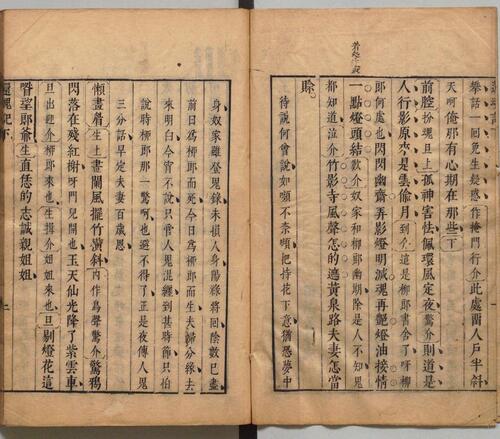 舉話一迴兒生疑惑作掩門行介此處留人戶半斜
天呵俺那有心期在那些下
前腔扮魂旦上孤神害怯佩環風定夜驚介則道是
人行影原來是雲偷月到介這是柳郎書舍了呀柳
郎何處也閃閃幽齋弄影燈明滅魂再艷燈油接情
一點燈頭結歎介奴家和柳郎幽期除是人不知鬼
都知道泣介竹影寺風聲怎的遮黃泉路夫妻怎當
賒
待說何曾說如嚬不奈嚬把持花下意猶恐夢中
身奴家雖登鬼錄未損人身陽祿將回陰數已盡
前日為柳郎而死今日為柳郎而生夫婦分緣去
來明白今宵不說只管人鬼混纏到甚時節只怕
說時柳郎那一驚呵也避不得了正是夜傳人鬼
三分話早定夫妻百歲恩
懶畫眉生上畫闌風擺竹橫斜內作鳥聲驚介驚鴉
閃落在殘紅榭呀門兒開也玉天仙光降了紫雲車
旦出迎介柳郎來也生揖介姐姐來也旦剔燈花這
咱望郎爺生直恁的志誠親姐姐
還魂記下